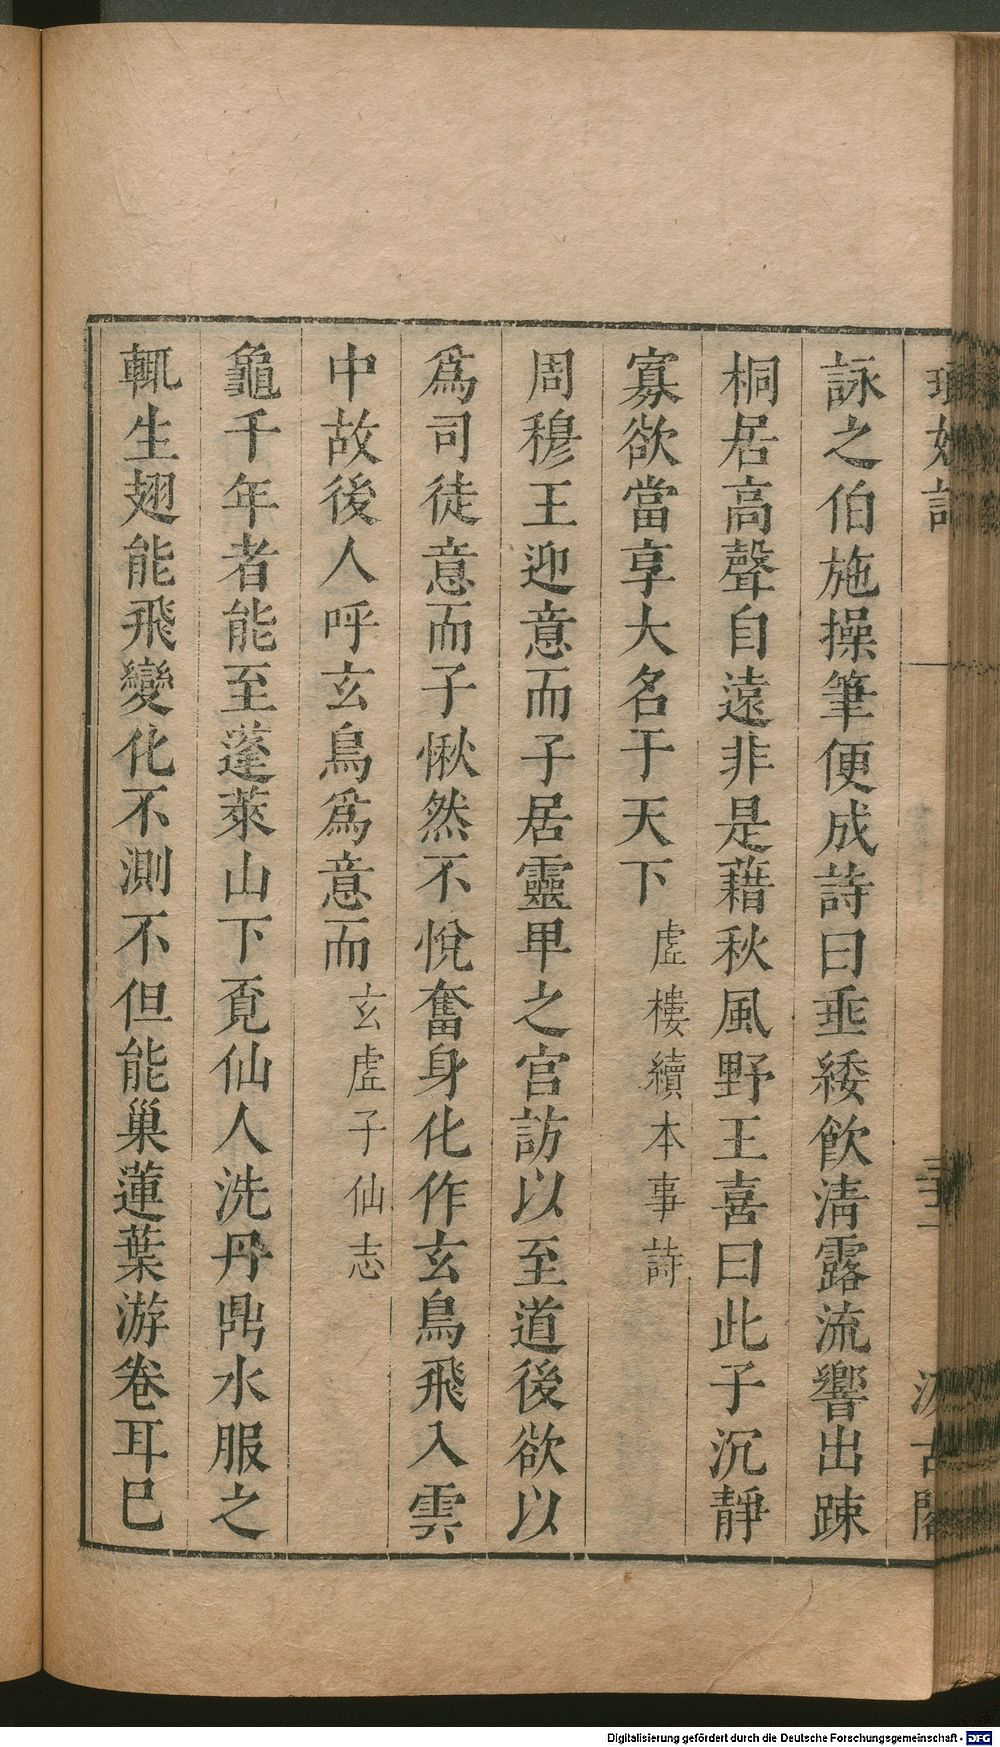 詠之伯施操筆便成詩曰垂緌飲清露流響出踈
桐居高聲自遠非是藉秋風野王喜曰此子沉靜
寡欲當享大名于天下虛樓續本事詩
周穆王迎意而子居靈卑之宮訪以至道後欲以
爲司徒意而子愀然不悅奮身化作玄鳥飛入雲
中故後人呼玄鳥爲意而玄虛子仙志
龜千年者能至蓬萊山下覓仙人洗丹鼎水服之
輒生翅能飛變化不測不但能巢蓮葉游卷耳巳
Digitalisierung gefördert durch die Deutsche Forschungsgemeinschaft - DFG